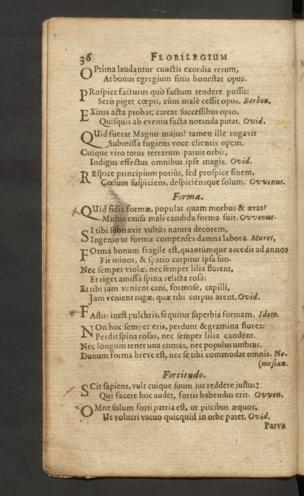 36 FLORILEGIUM
OPtima laudantur cunctis exordia rerum,
Arbonus egregium finis honestat opus.
PRospice facturus quò factum tendere possit:
Serò piget cœpti, cùm malè cessit opus. Barbon.
EXitus acta probat; careat successibus opto,
Quisquis ab eventu facta notanda putat. Ovid.
QUid fuerat Magno majus? tamen ille rogavit
Submissa fugiens voce clientis opem.
Cuique viro totus terrarum paruit orbis,
Indigus effectus omnibus ipse magis. Ovid.
REspice principium potiùs, sed prospice finem,
Cœlum suspiciens, despiciénsque solum. Ovvenus.
Forma.
QUid fidis formæ, populat quam morbus & ætas?
Multis causa mali candida forma fuit. Ovvenus.
SI tibi subtraxit vultûs natura decorem,
Ingenio ut formæ compenses damna labora. Muret,
FOrma bonum fragile est, quantúmque accedit ad annos
Fit minor, & spatio carpitur ipsa suo.
Nec semper violæ, nec semper lilia florent,
Et riget amissâ spina relicta rosâ:
Et tibi jam venient cani, formose, capilli,
Jam venient rugæ, quæ tibi corpus arent. Ovid.
FAstus inest pulchris, sequitur superbia formam. Idem.
NOn hoc semper eris, perdunt & gramina flores:
Perdit spina rosas, nec semper lilia candent.
Nec longum tenet uva comas, nec populus umbras.
Donum forma breve est, nec se tibi commodat omnis. Ne-
(mesian.
Fortitudo.
SCit sapiens, vult cuique suum jus reddere justus;
Qui facere hoc audet, fortis habendus erit. Ovven.
OMne solum forti patria est, ut piscibus æquor,
Ut volucri vacuo quicquid in orbe patet. Ovid.
Parva